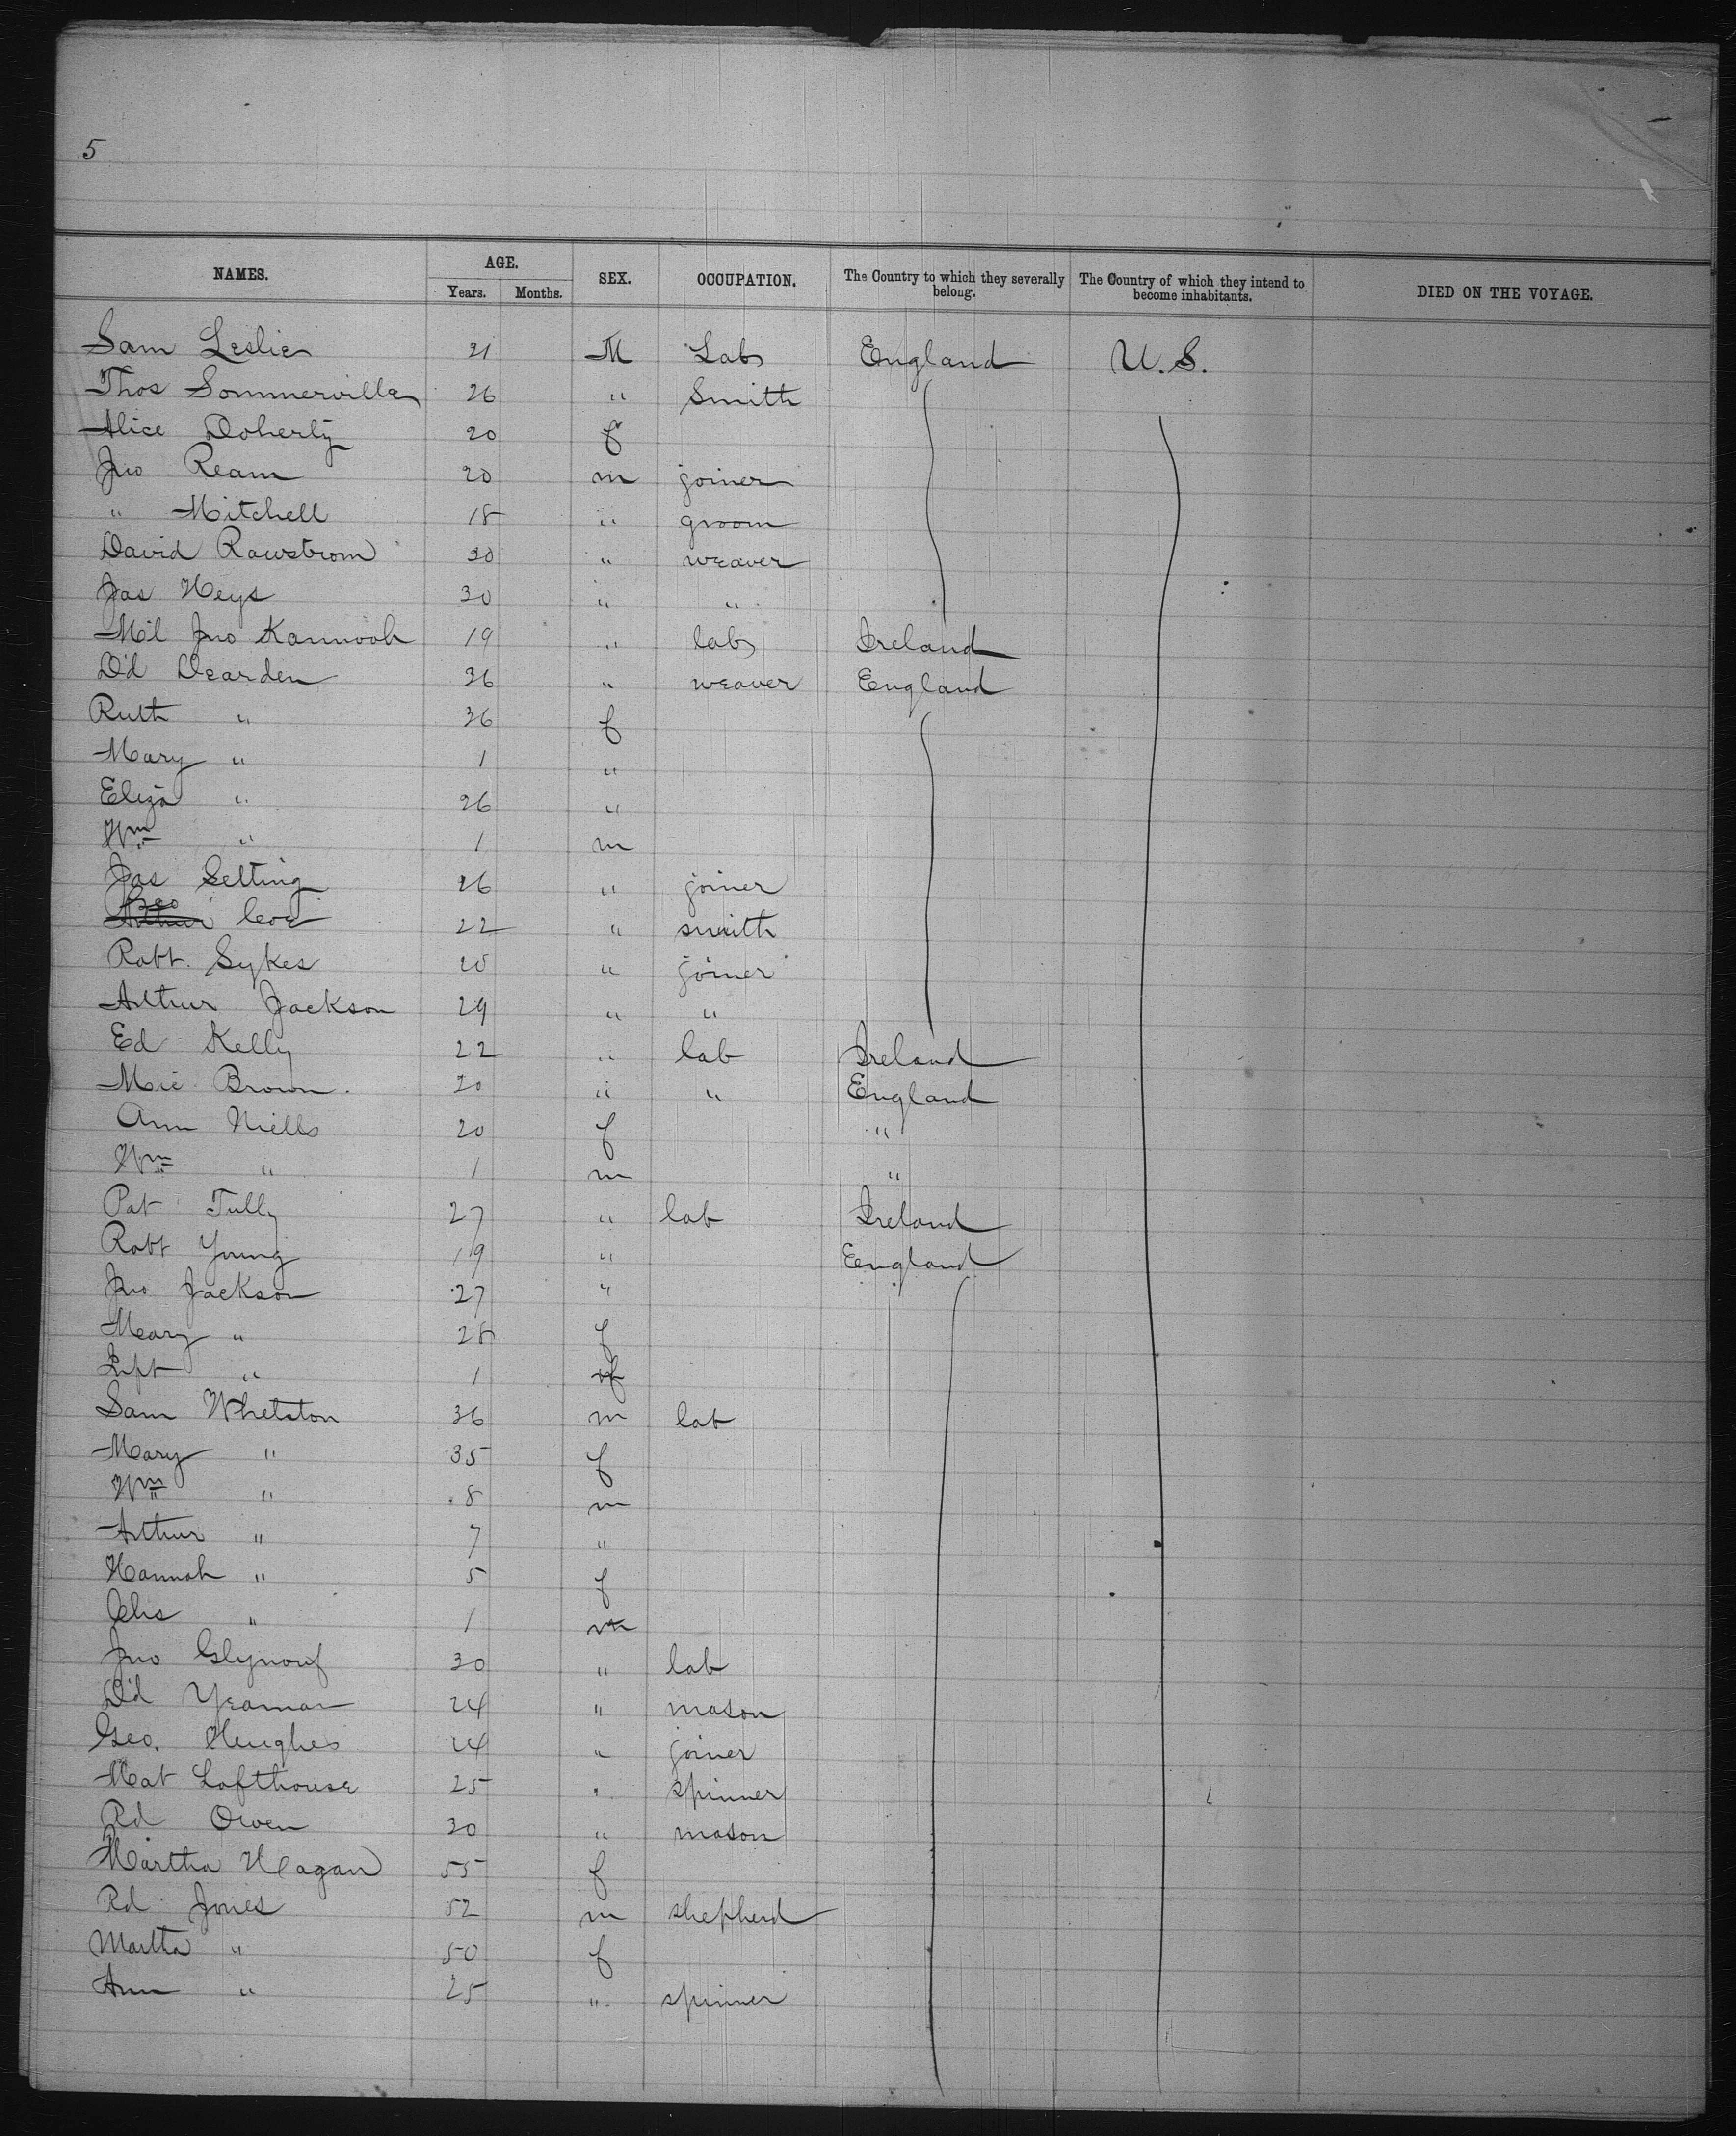 5
NAMES. AGE. SEX. OCCUPATION. The Country to which they severally belong. The Country of which they intend to become inhabitants. DIED ON THE VOYAGE.
Years. Months.
Sam Leslie 21 M Lab England U.S.
Thos Sommerville 26 " Smith
Alice Doherty 20 f
Jno Ream 20 m joiner
" Mitchell 18 " groom
David Rawstrom 20 " weaver
Jas Heys 30 " "
Mil Jno 19 " lab Ireland
D'd Dearden 36 " weaver England
Ruth " 36 f
Mary " 1 "
Eliza " 26 "
Wm " 1 m
Jas Selting 26 " joiner
Geo 22 " smith
Robt. Sykes 20 " joiner
Arthur Jackson 29 " "
Ed Kelly 22 " lab Ireland
Mic Brown. 20 " " England
Ann Niells 20 f "
Wm " 1 m "
Pat Tully 27 " lab Ireland
Robt Young 19 " England
Jno Jackson 27 "
Mary " 28 f
" 1 f
Sam Whetston 36 m lab
Mary " 35 f
Wm " 8 m
Arthur " 7 "
Hannah " 5 f
Chs " 1 m
Jno 30 " lab
D'd Yeaman 24 " mason
Geo. Hughes 24 " joiner
Mat Lofthouse 25 " spinner
Rd Owen 30 " mason
Martha Hagan 55 f
Rd Jones 52 m shepherd
Martha " 50 f
Ann " 25 " spinner